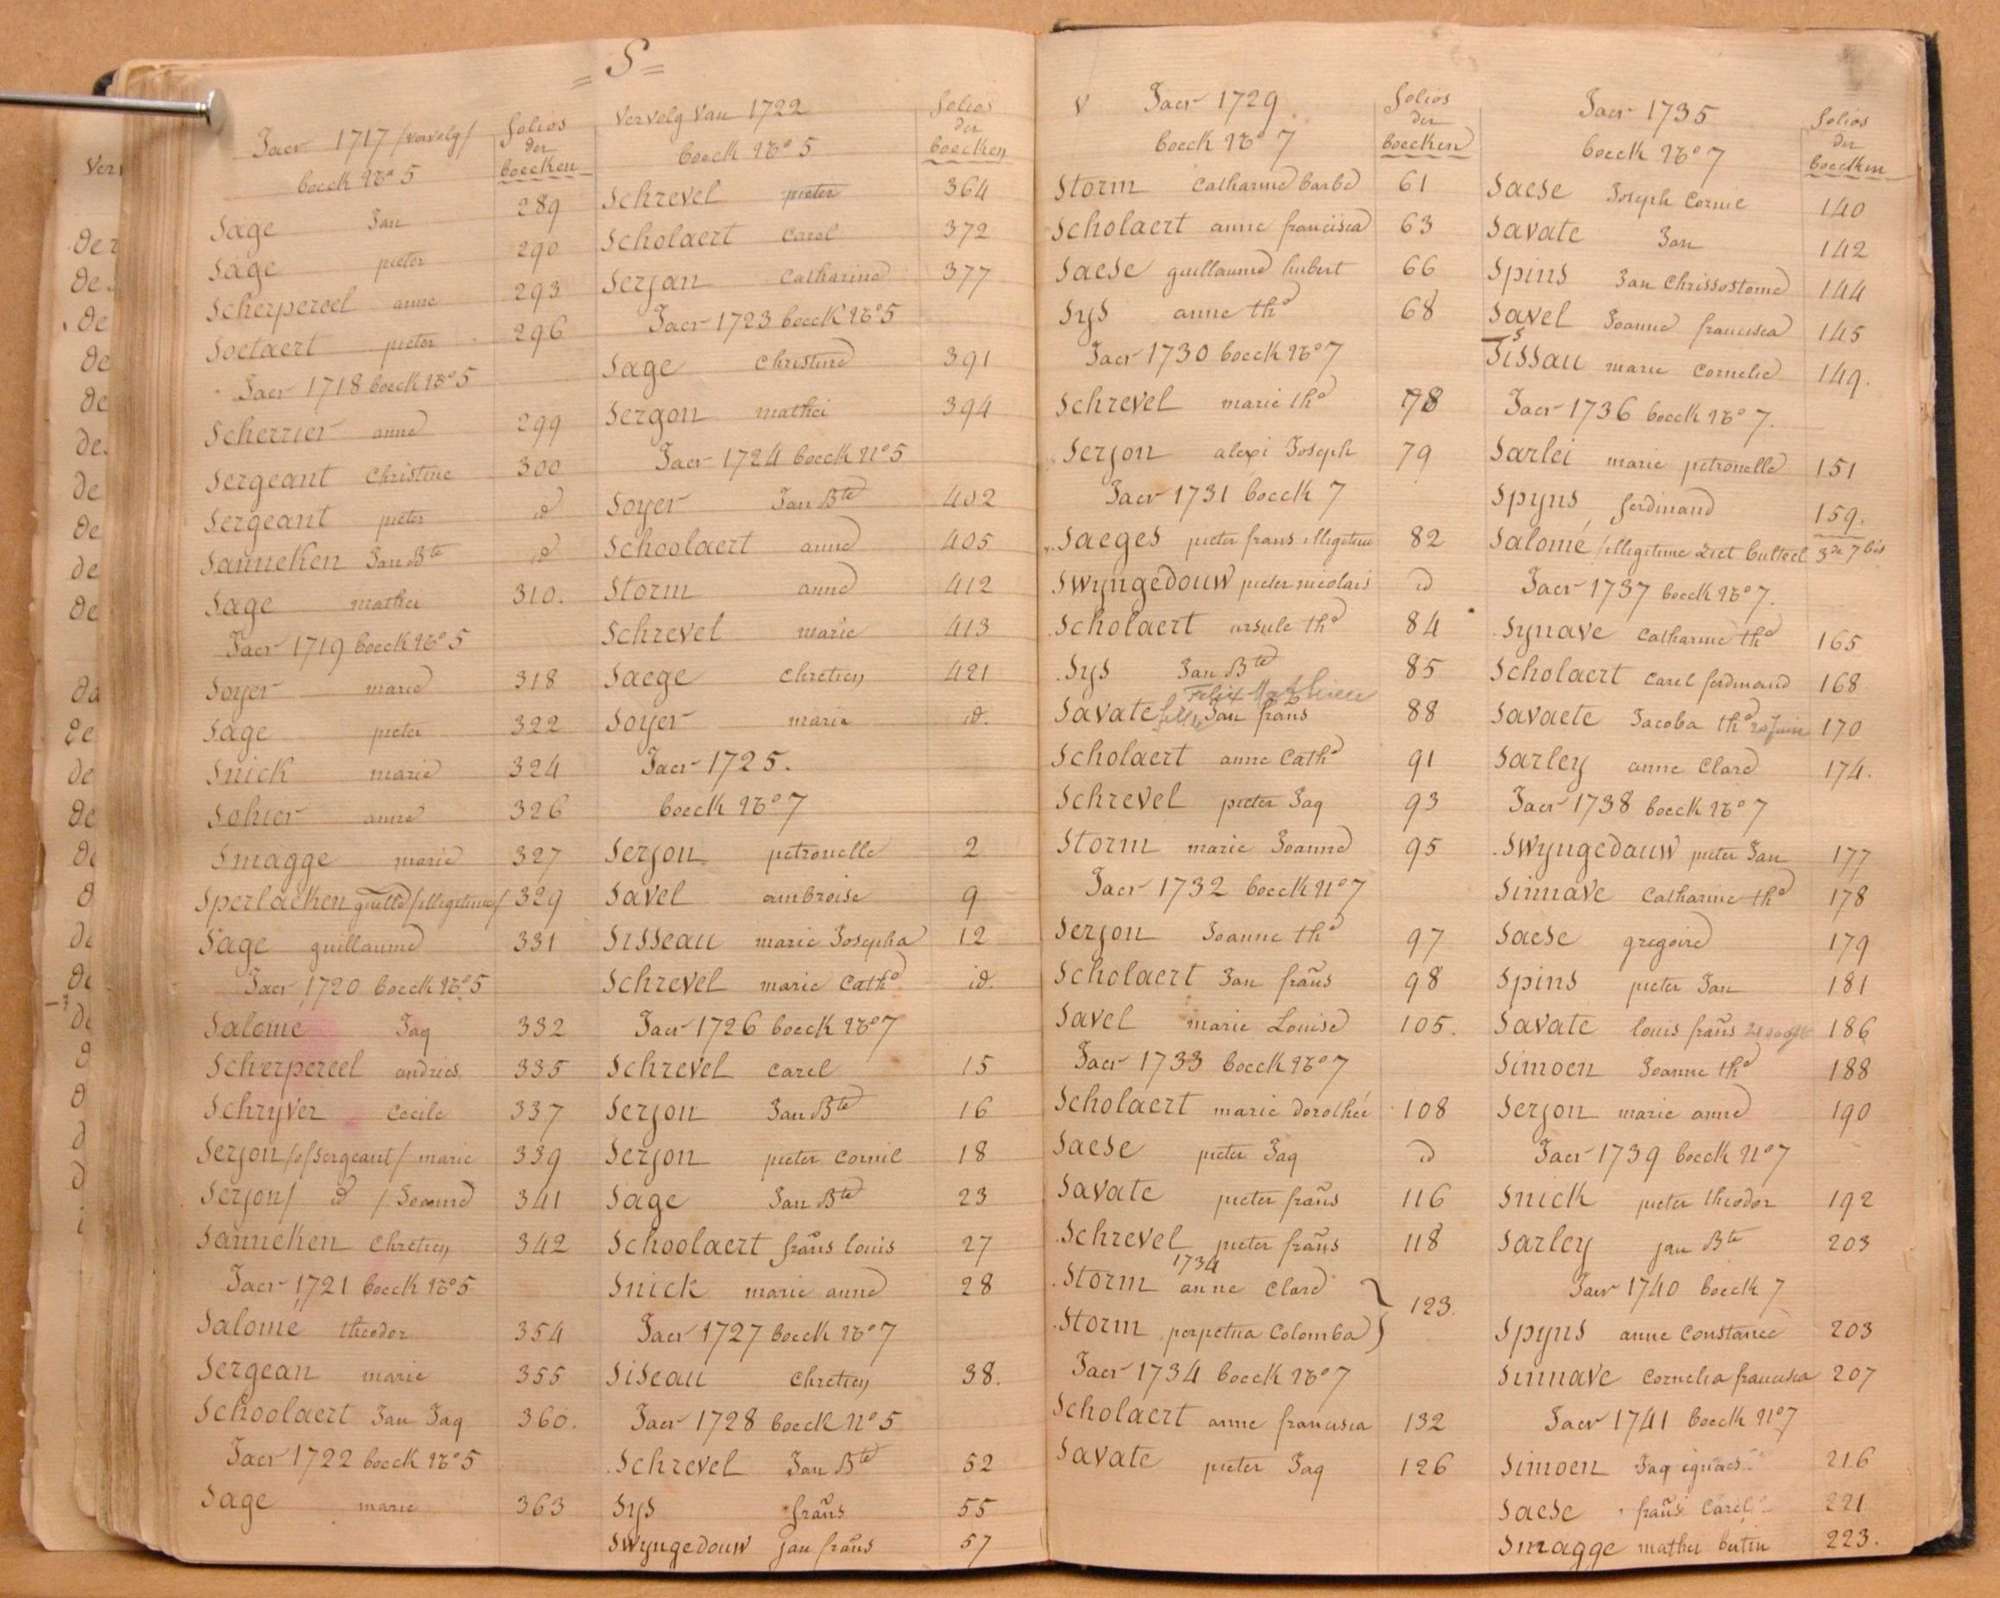 = S =
Jaer 1717 /vervolg/
boeck No 5
folios
der
boecken
Sage Jan 289
Sage pieter 290
Scherpereel anne 293
Soetaert pieter 296
Jaer 1718 boeck No 5
Scherrier anne 299
Sergeant Christine 300
Sergeant pieter id
Sanneken Jan Bte id
Sage mathei 310.
Jaer 1719 boeck No 5
Soyer marie 318
Sage pieter 322
Snick marie 324
Sohier anne 326
Smagge marie 327
Sperlaeken guille /illegitime/ 329
Sage guillaume 331
Jaer 1720 boeck No 5
Salomé Jaq 332
Scherpereel andries 335
Schryver Cecile 337
Serjon /of Sergeant/ marie 339
Serjon / id / Joanne 341
Sanneken Chretien 342
Jaer 1721 boeck No 5
Salomé theodor 354
Sergean marie 355
Schoolaert Jan Jaq 360.
Jaer 1722 boeck No 5
Sage marie 363
Vervolg Van 1722
boeck No 5
folios
der
boecken
Schrevel pieter 364
Scholaert Carel 372
Serjan Catharine 377
Jaer 1723 boeck No 5
Sage Christine 391
Sergon mathei 394
Jaer 1724 boeck No 5
Soyer Jan Bte 402
Schoolaert anne 405
Storm anne 412
Schrevel marie 413
Saege Chretien 421
Soyer maria id.
Jaer 1725.
boeck No 7
Serjon petronelle 2
Savel ambroise 9
Sisseau marie Josepha 12
Schrevel marie Cathe id.
Jaer 1726 boeck No 7
Schrevel Carel 15
Serjon Jan Bte 16
Serjon pieter Cornil 18
Sage Jan Bte 23
Schoolaert frans louis 27
Snick marie anne 28
Jaer 1727 boeck No 7
Siseau Chretien 38.
Jaer 1728 boeck No 5
Schrevel Jan Bte 52
Sys frans 55
Swyngedouw jan frans 57
V Jaer 1729
boeck No 7
folios
der
boecken
Storm Catharine barbe 61
Scholaert anne francisca 63
Saese guillaume hubert 66
Sys anne the 68
Jaer 1730 boeck No 7
Schrevel marie the 78
Serjon alexi Joseph 79
Jaer 1731 boeck 7
Saeges pieter frans illegitime 82
Swyngedouw pieter nicolais id
Scholaert ursule the 84
Sys Jan Bte 85
Felix Mathieu
Savate Jan frans 88
Scholaert anne Cathe 91
Schrevel pieter Jaq 93
Storm marie Joanne 95
Jaer 1732 boeck No 7
Serjon Joanne the 97
Scholaert Jan frans 98
Savel marie Louise 105.
Jaer 1733 boeck No 7
Scholaert marie dorothée 108
Saese pieter Jaq id
Savate pieter frans 116
Schrevel pieter frans 118
1734
Storm anne Clare } 123.
Storm perpetua Colomba }
Jaer 1734 boeck No 7
Scholaert anne francisca 132
Savate pieter Jaq 126
Jaer 1735
boeck No 7
folios
der
boecken
Saese Joseph Cornie 140
Savate Jan 142
Spins Jan Chrissostome 144
Savel Joanne francisca 145
S
Tissau marie Cornelie 149.
Jaer 1736 boeck No 7.
Sarlei marie petronelle 151
Spyns ferdinand 159.
Salomé /illegitime ziet bulteel 3de 7 bis
Jaer 1737 boeck No 7.
Synave Catharine the 165
Scholaert Carel ferdinand 168
Savaete Jacoba the 20 Juin 170
Sarley anne Clare 174.
Jaer 1738 boeck No 7
Swyngedauw pieter Jan 177
Sinnave Catharine the 178
Saese gregoire 179
Spins pieter Jan 181
Savate louis frans 186
Simoen Joanne the 188
Serjon marie anne 190
Jaer 1739 boeck No 7
Snick pieter theodor 192
Sarley jan Bte 203
Jaer 1740 boeck 7
Spyns anne Constance 203
Sinnave Cornelia francisca 207
Jaer 1741 boeck No 7
Simoen Jaq ignaes 216
Saese frans Carel 221
Smagge mathei bertin 223.